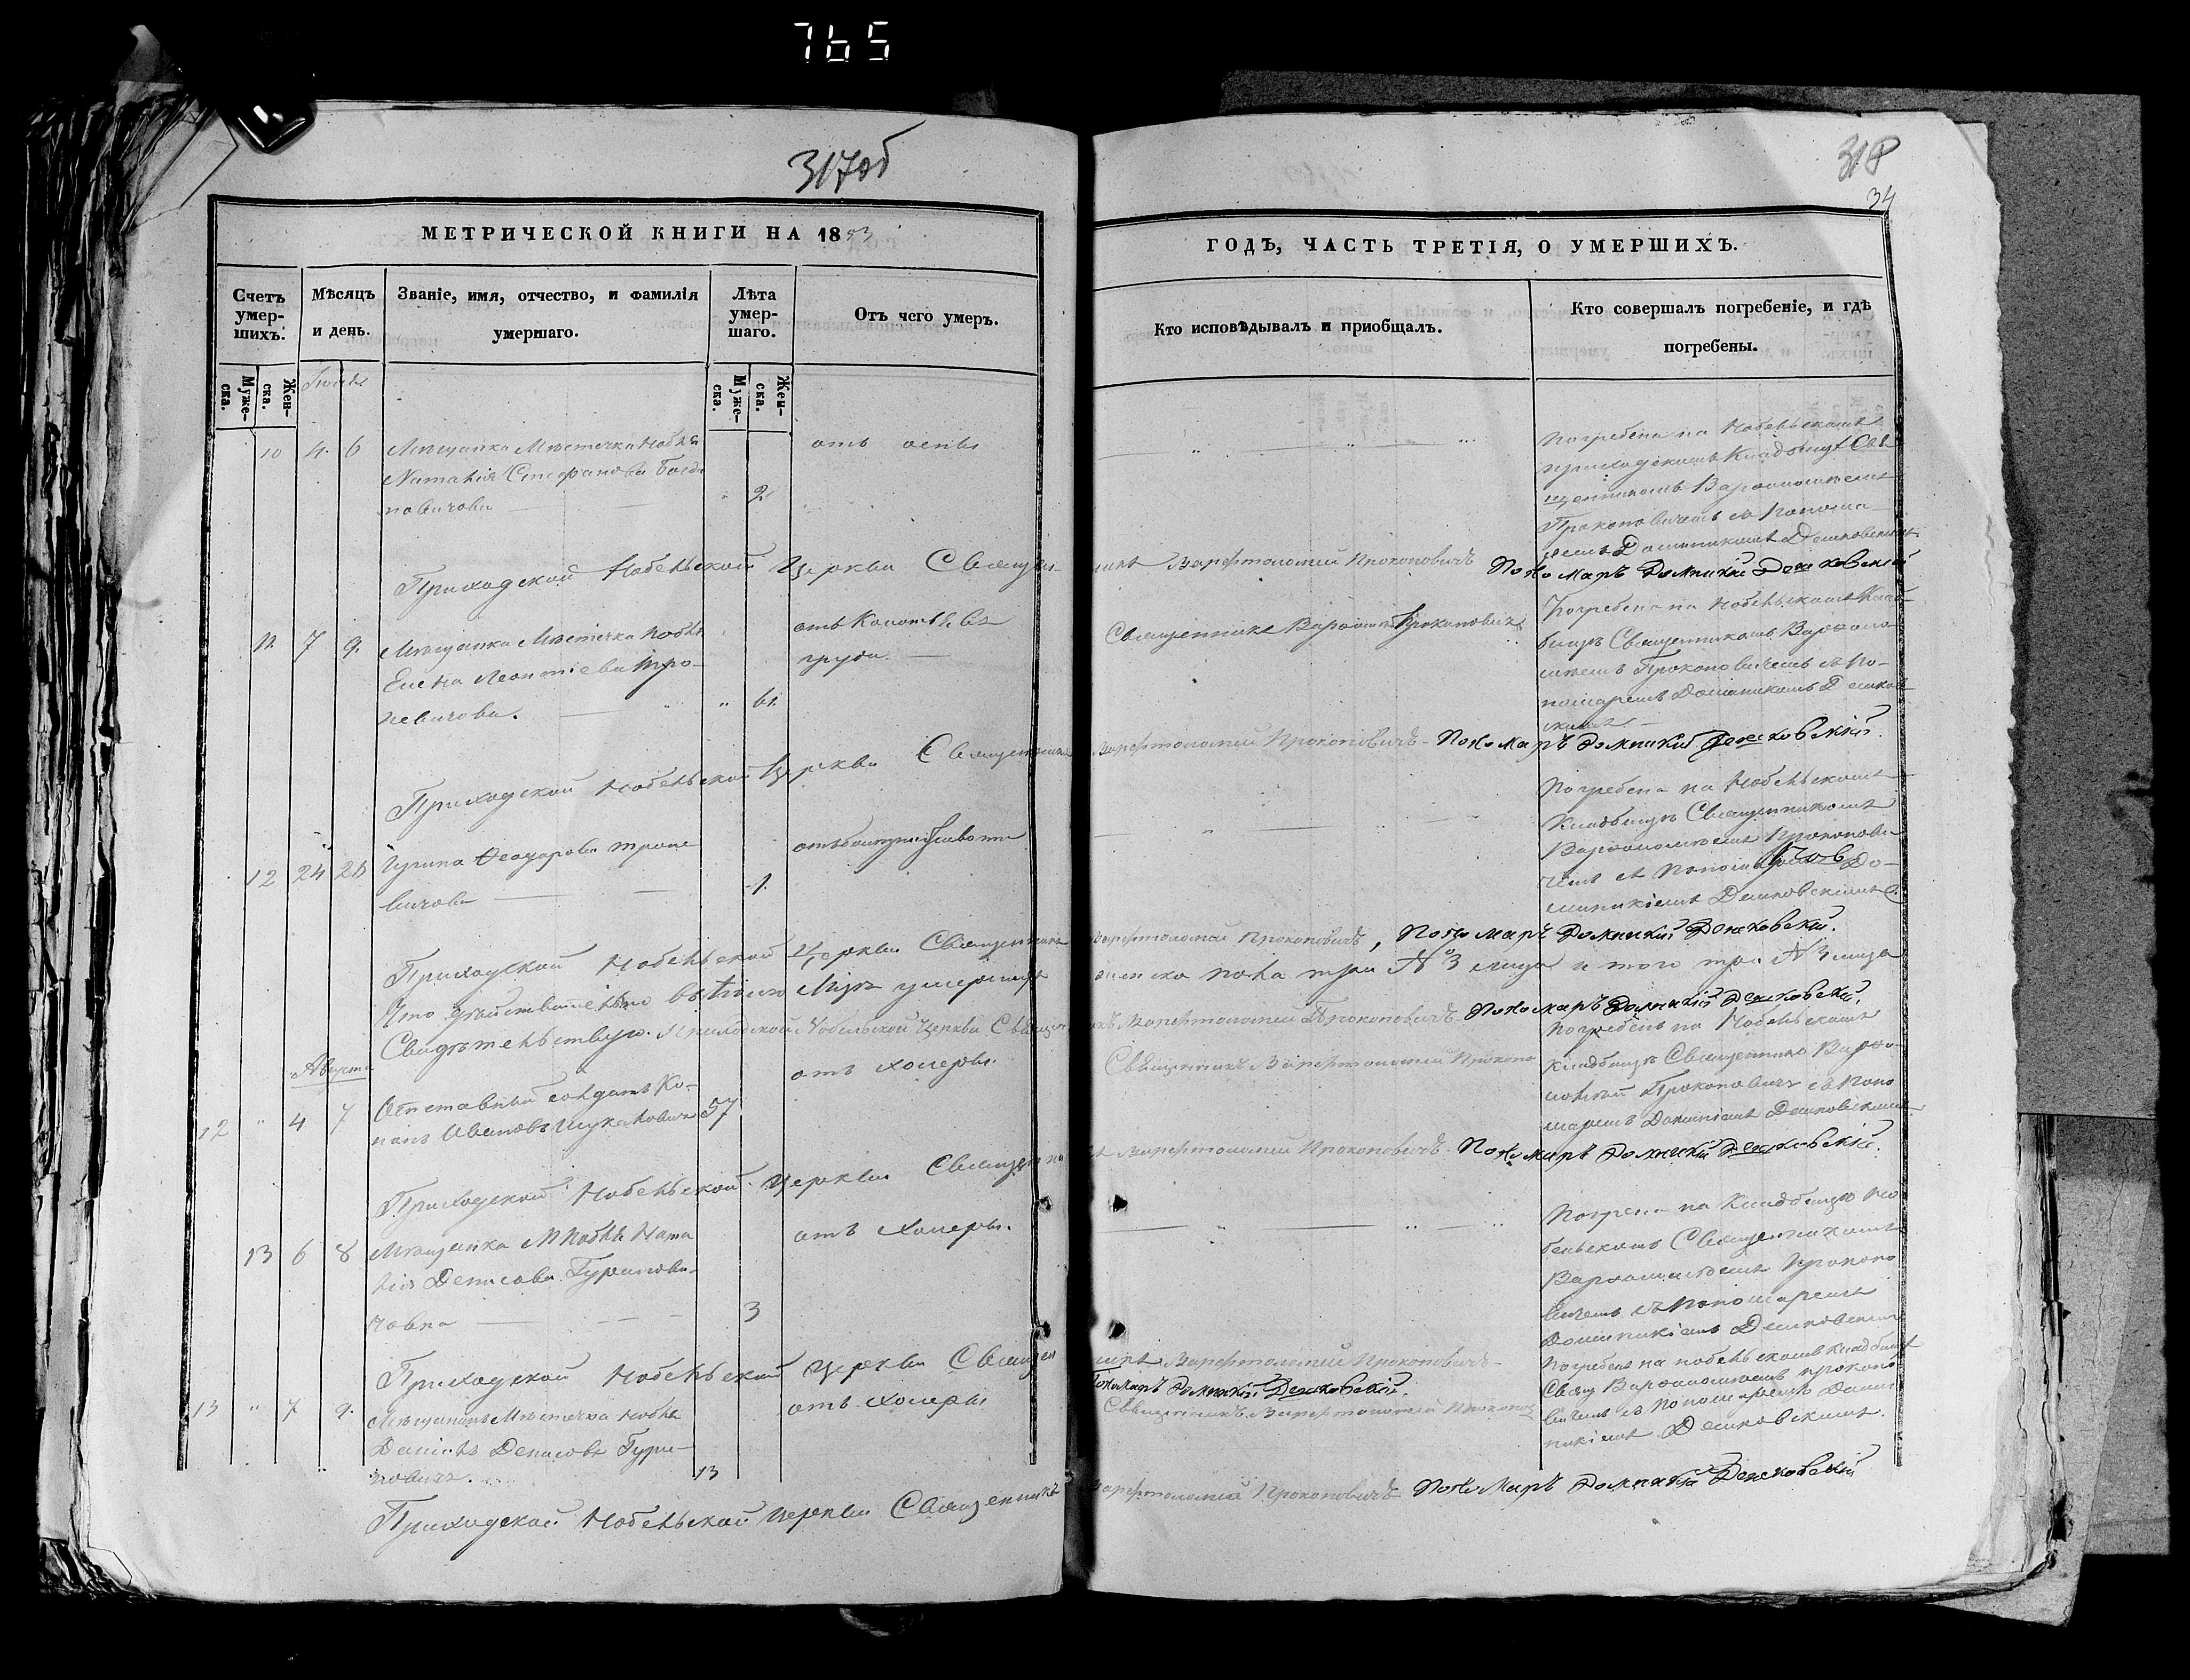 765
317об
318
34
МЕТРИЧЕСКОЙ КНИГИ НА 1853
ГОДЪ, ЧАСТЬ ТРЕТІЯ, О УМЕРШИХЪ.
Счетъ умер-шихъ.
Мѣсяцъ и день.
Званіе, имя, отчество, и фамилія умершаго.
Лѣта умер-шаго.
Отъ чего умеръ.
Кто исповѣдывалъ и приобщалъ.
Кто совершалъ погребеніе, и гдѣ погребены.
Муже-ска.
Жен-ска.
Муже-ска.
Жен-ска.
10 4. 6 Мѣщанка Мѣстечка Нобля
Наталія Стефанова Богда
новичова
2
отъ оспы
Погребена на Нобельскомъ
приходскомъ Кладбищѣ Свя
щенникомъ Варфоломеемъ
Прокоповичемъ съ Понома
ремъ Доминикомъ Демковскимъ
Приходской Нобельской Церкви Священ
никъ Варфоломей Прокоповичъ Пономаръ Домникій Демковскій
11 7 9. Мѣщанка Мѣстечка Нобля
Елена Леонтіева Тро-
невичова.
61
отъ Колотья въ
груди.
Священникъ Варфолом Прокоповичъ
Погребена на Нобельскомъ Клад-
бищѣ Священникомъ Варфоло-
меемъ Прокоповичемъ съ По-
номаремъ Доминикомъ Демков
скимъ
Приходской Нобельской Церкви Священникъ
Варфоломей Прокоповичъ Пономаръ Домникій Демковскій.
12 24 26 Ирина Феодорова Троне
вичова
1.
Погребена на Нобельскомъ
Кладбищѣ Священникомъ
Варфоломеемъ Прокопови
чемъ съ Пономаремъ До-
миникіемъ Демковскимъ
Приходской Нобельской Церкви Священникъ
Варфоломей Прокоповичъ, Пономаръ Домникій Демковскій.
Что дѣйствительно въ Іюлѣ Мцѣ умерших
женска пола три № 3 лица и того три № 3 лица
Свидѣтельствую. Приходской Нобельской Церкви Священ
никъ Варфоломей Прокоповичъ Пономаръ Домникій Демковскій.
Августа
12 " 4 7 Отставный солдатъ Ко-
нонъ Ивановъ
57
отъ холеры.
Священникъ Варфоломей Прокопо
Погребенъ на Нобельскомъ
Кладбищѣ Священникъ Варфо-
ломей Прокоповичъ съ Поно
маремъ Доминіемъ Демковскимъ
Приходской Нобельской Церкви Священни
къ Варфоломей Прокоповичъ Пономаръ Домникій Демковскій.
13 6 8 Мѣщанка М Нобля Ната
лія Денисова Гуринови
човна
3
отъ холеры.
Погребена на Кладбищѣ Но
бельскомъ Священникомъ
Варфоломеемъ Прокопо
вичемъ съ Пономаремъ
Доминикіемъ Демковским
Приходской Нобельской Церкви Священ
никъ Варфоломей Прокоповичъ
Пономаръ Домникій Демковскій.
13 " 7 9. Мѣщанинъ Мѣстечка Нобля
Даніилъ Денисовъ Гури-
новичъ.
13
отъ холеры
Священникъ Варфоломей Прокопов
Погребенъ на Нобельскомъ Кладбищѣ
Свящ Варфоломеемъ Прокопо
вичемъ съ Пономаремъ Доми
никіемъ Демковскимъ.
Приходской Нобельской Церкви Священникъ
Варфоломей Прокоповичъ Пономаръ Домникій Демковскій